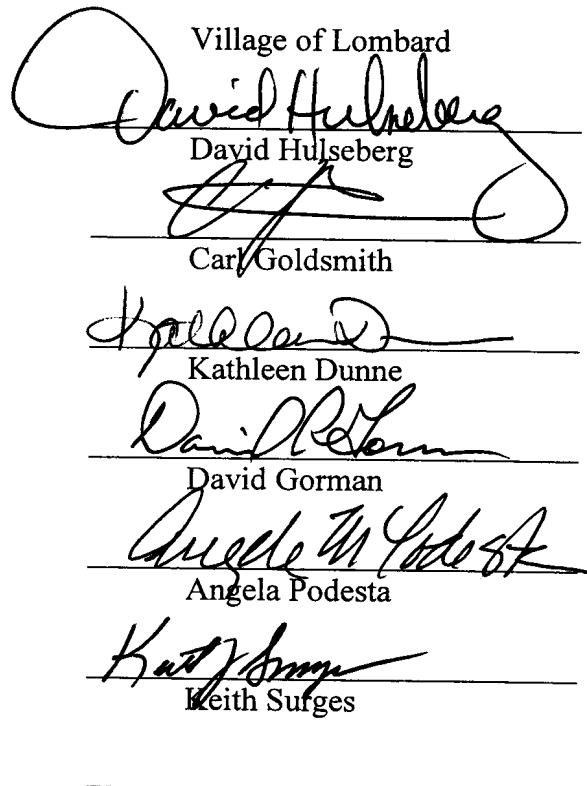 Village of Lombard
David Hulseberg
David Hulseberg
Carl Goldsmith
Kathleen Dunne
Kathleen Dunne
David R Gorman
David Gorman
Angela M Podesta
Angela Podesta
Keith J Surges
Keith Surges